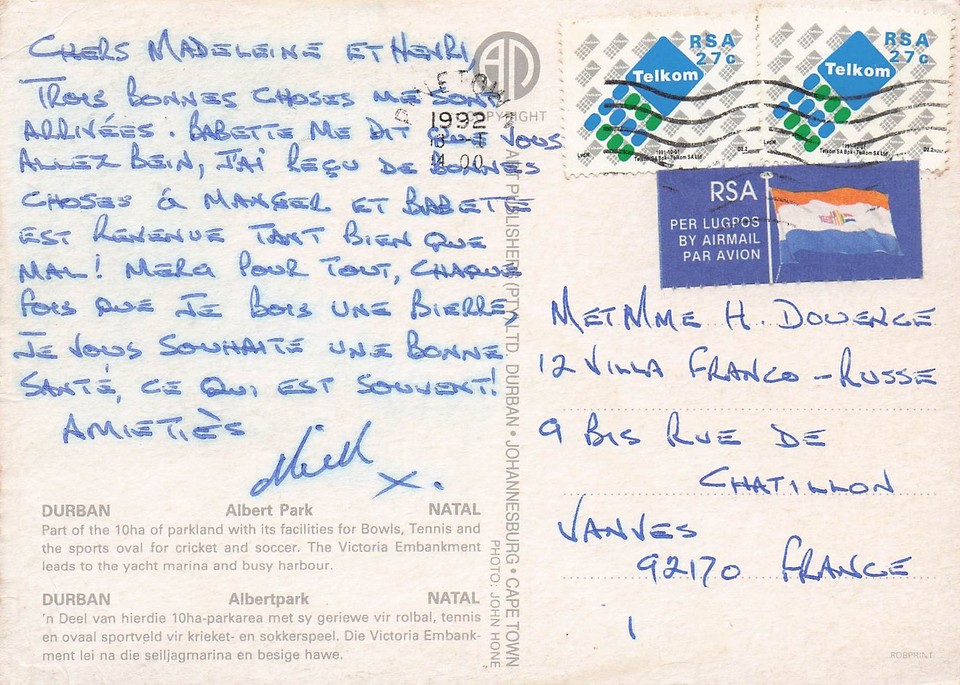 CHERS MADELEINE ET HENRI,
TROIS BONNES CHOSES ME SONT
ARRIVÉES. BABETTE ME DIT QUE VOUS
ALLEZ BEIN, J'AI REÇU DE BONNES
CHOSES À MANGER ET BABETTE
EST REVENUE TANT BIEN QUE
MAL! MERCI POUR TOUT, CHAQUE
FOIS QUE JE BOIS UNE BIERRE,
JE VOUS SOUHAITE UNE BONNE
SANTÉ, CE QUI EST SOUVENT!
AMIETIÈS
X.
DURBAN Albert Park NATAL
Part of the 10ha of parkland with its facilities for Bowls, Tennis and
the sports oval for cricket and soccer. The Victoria Embankment
leads to the yacht marina and busy harbour.
DURBAN Albertpark NATAL
'n Deel van hierdie 10ha-parkarea met sy geriewe vir rolbal, tennis
en ovaal sportveld vir krieket- en sokkerspeel. Die Victoria Embank-
ment lei na die seiljagmarina en besige hawe.
COPYRIGHT
PUBLISHERS (PTY) LTD. DURBAN • JOHANNESBURG • CAPE TOWN
PHOTO: JOHN HONE
1992
RSA
27c
Telkom
1991-10-01
Telkom SA Bpk • Telkom SA Ltd
RSA
27c
Telkom
1991-10-01
Telkom SA Bpk • Telkom SA Ltd
RSA
PER LUGPOS
BY AIRMAIL
PAR AVION
M ET MME H. DOUENCE
12 VILLA FRANCO-RUSSE
9 BIS RUE DE
CHATILLON
VANVES
92170 FRANCE
ROBPRINT